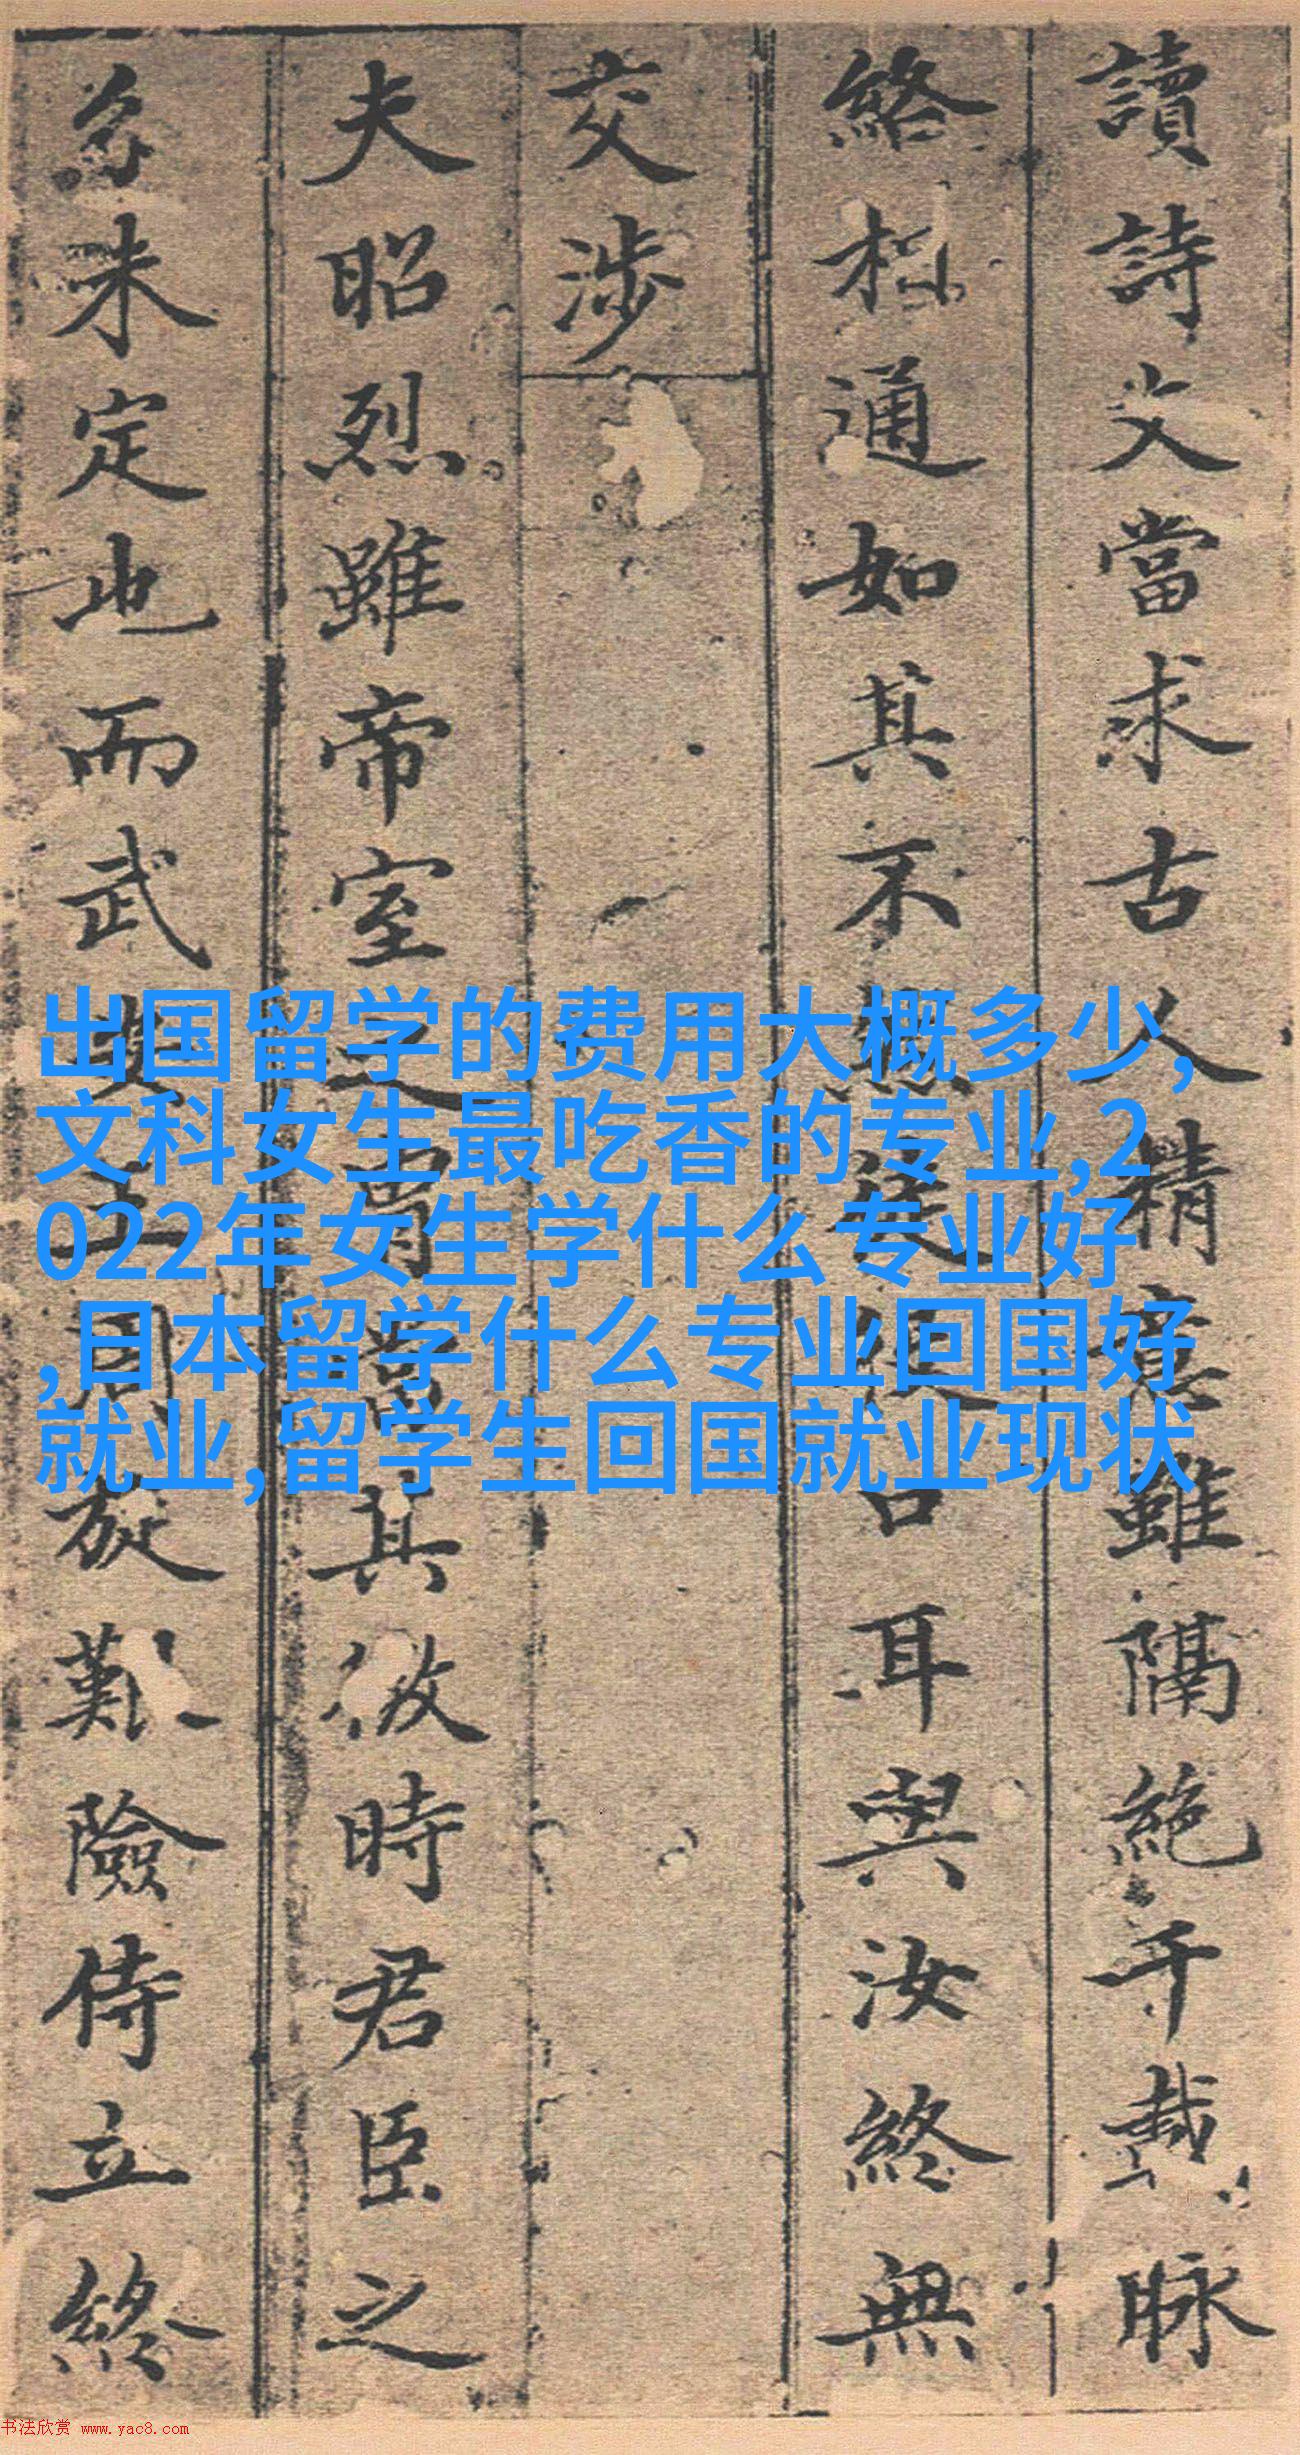 讀詩文當求古人精意雖隔絶千載脉
絡相通如其不口耳與汝終無
交涉
夫昭烈雖帝室之胄當其微時君臣之
未定也而武周旋艱險侍立終
出国留学的费用大概多少,
文科女生最吃香的专业,2
022年女生学什么专业好
,日本留学什么专业回国好
就业,留学生回国就业现状
书法欣赏 www.yac8.com